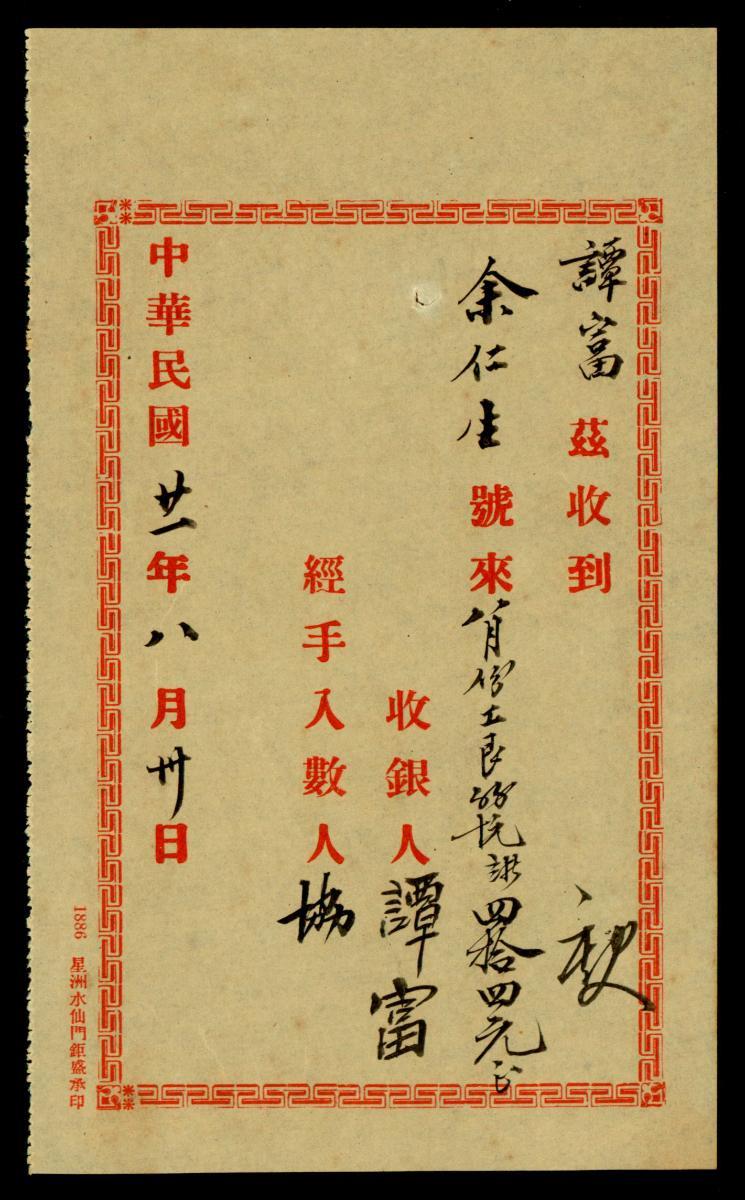 譚富茲收到
余仁生號來八月份工艮四拾四元
收銀人譚富
經手入數人協
中華民國廿一年八月卅日
1886 星洲水仙門鉅盛承印